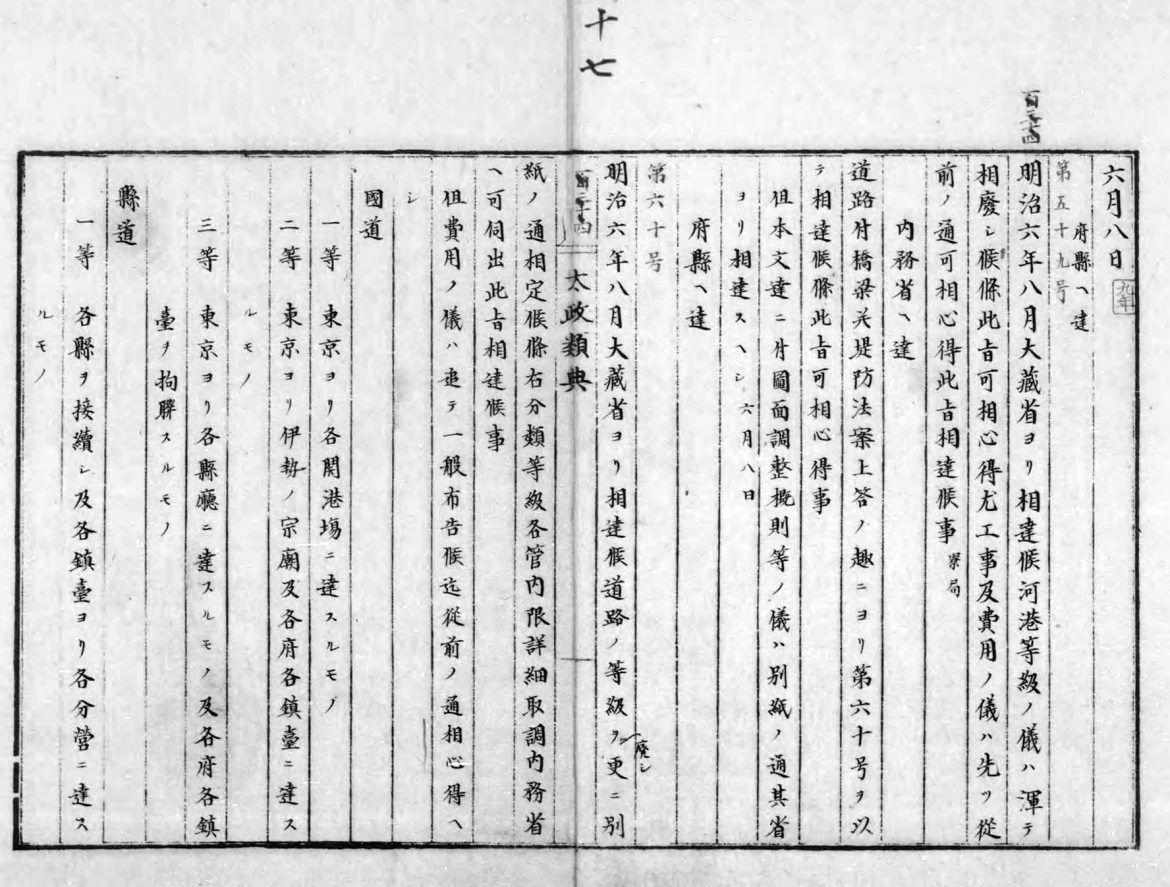 十七
百三十四
六月八日 九年
府縣ヘ達
第五十九号
明治六年八月大藏省ヨリ相達候河港等級ノ儀ハ渾テ
相廢シ候條此旨可相心得尤工事及費用ノ儀ハ先ツ從
前ノ通可相心得此旨相達候事 寮局
内務省ヘ達
道路付橋梁关堤防法案上答ノ趣ニヨリ第六十号ヲ以
テ相達候條此旨可相心得事
但本文達ニ付圖面調整概則等ノ儀ハ別紙ノ通其省
ヨリ相達スヘシ 六月八日
府縣ヘ達
第六十号
明治六年八月大藏省ヨリ相達候道路ノ等級ヲ廢シ更ニ別
百三十四
太政類典
一
紙ノ通相定候條右分類等級各管内限詳細取調内務省
ヘ可伺出此旨相達候事
但費用ノ儀ハ追テ一般布告候迄從前ノ通相心得ヘ
シ
國道
一等 東京ヨリ各開港場ニ達スルモノ
二等 東京ヨリ伊勢ノ宗廟及各府各鎮臺ニ達ス
ルモノ
三等 東京ヨリ各縣廳ニ達スルモノ及各府各鎮
臺ヲ拘聯スルモノ
縣道
一等 各縣ヲ接續シ及各鎮臺ヨリ各分營ニ達ス
ルモノ